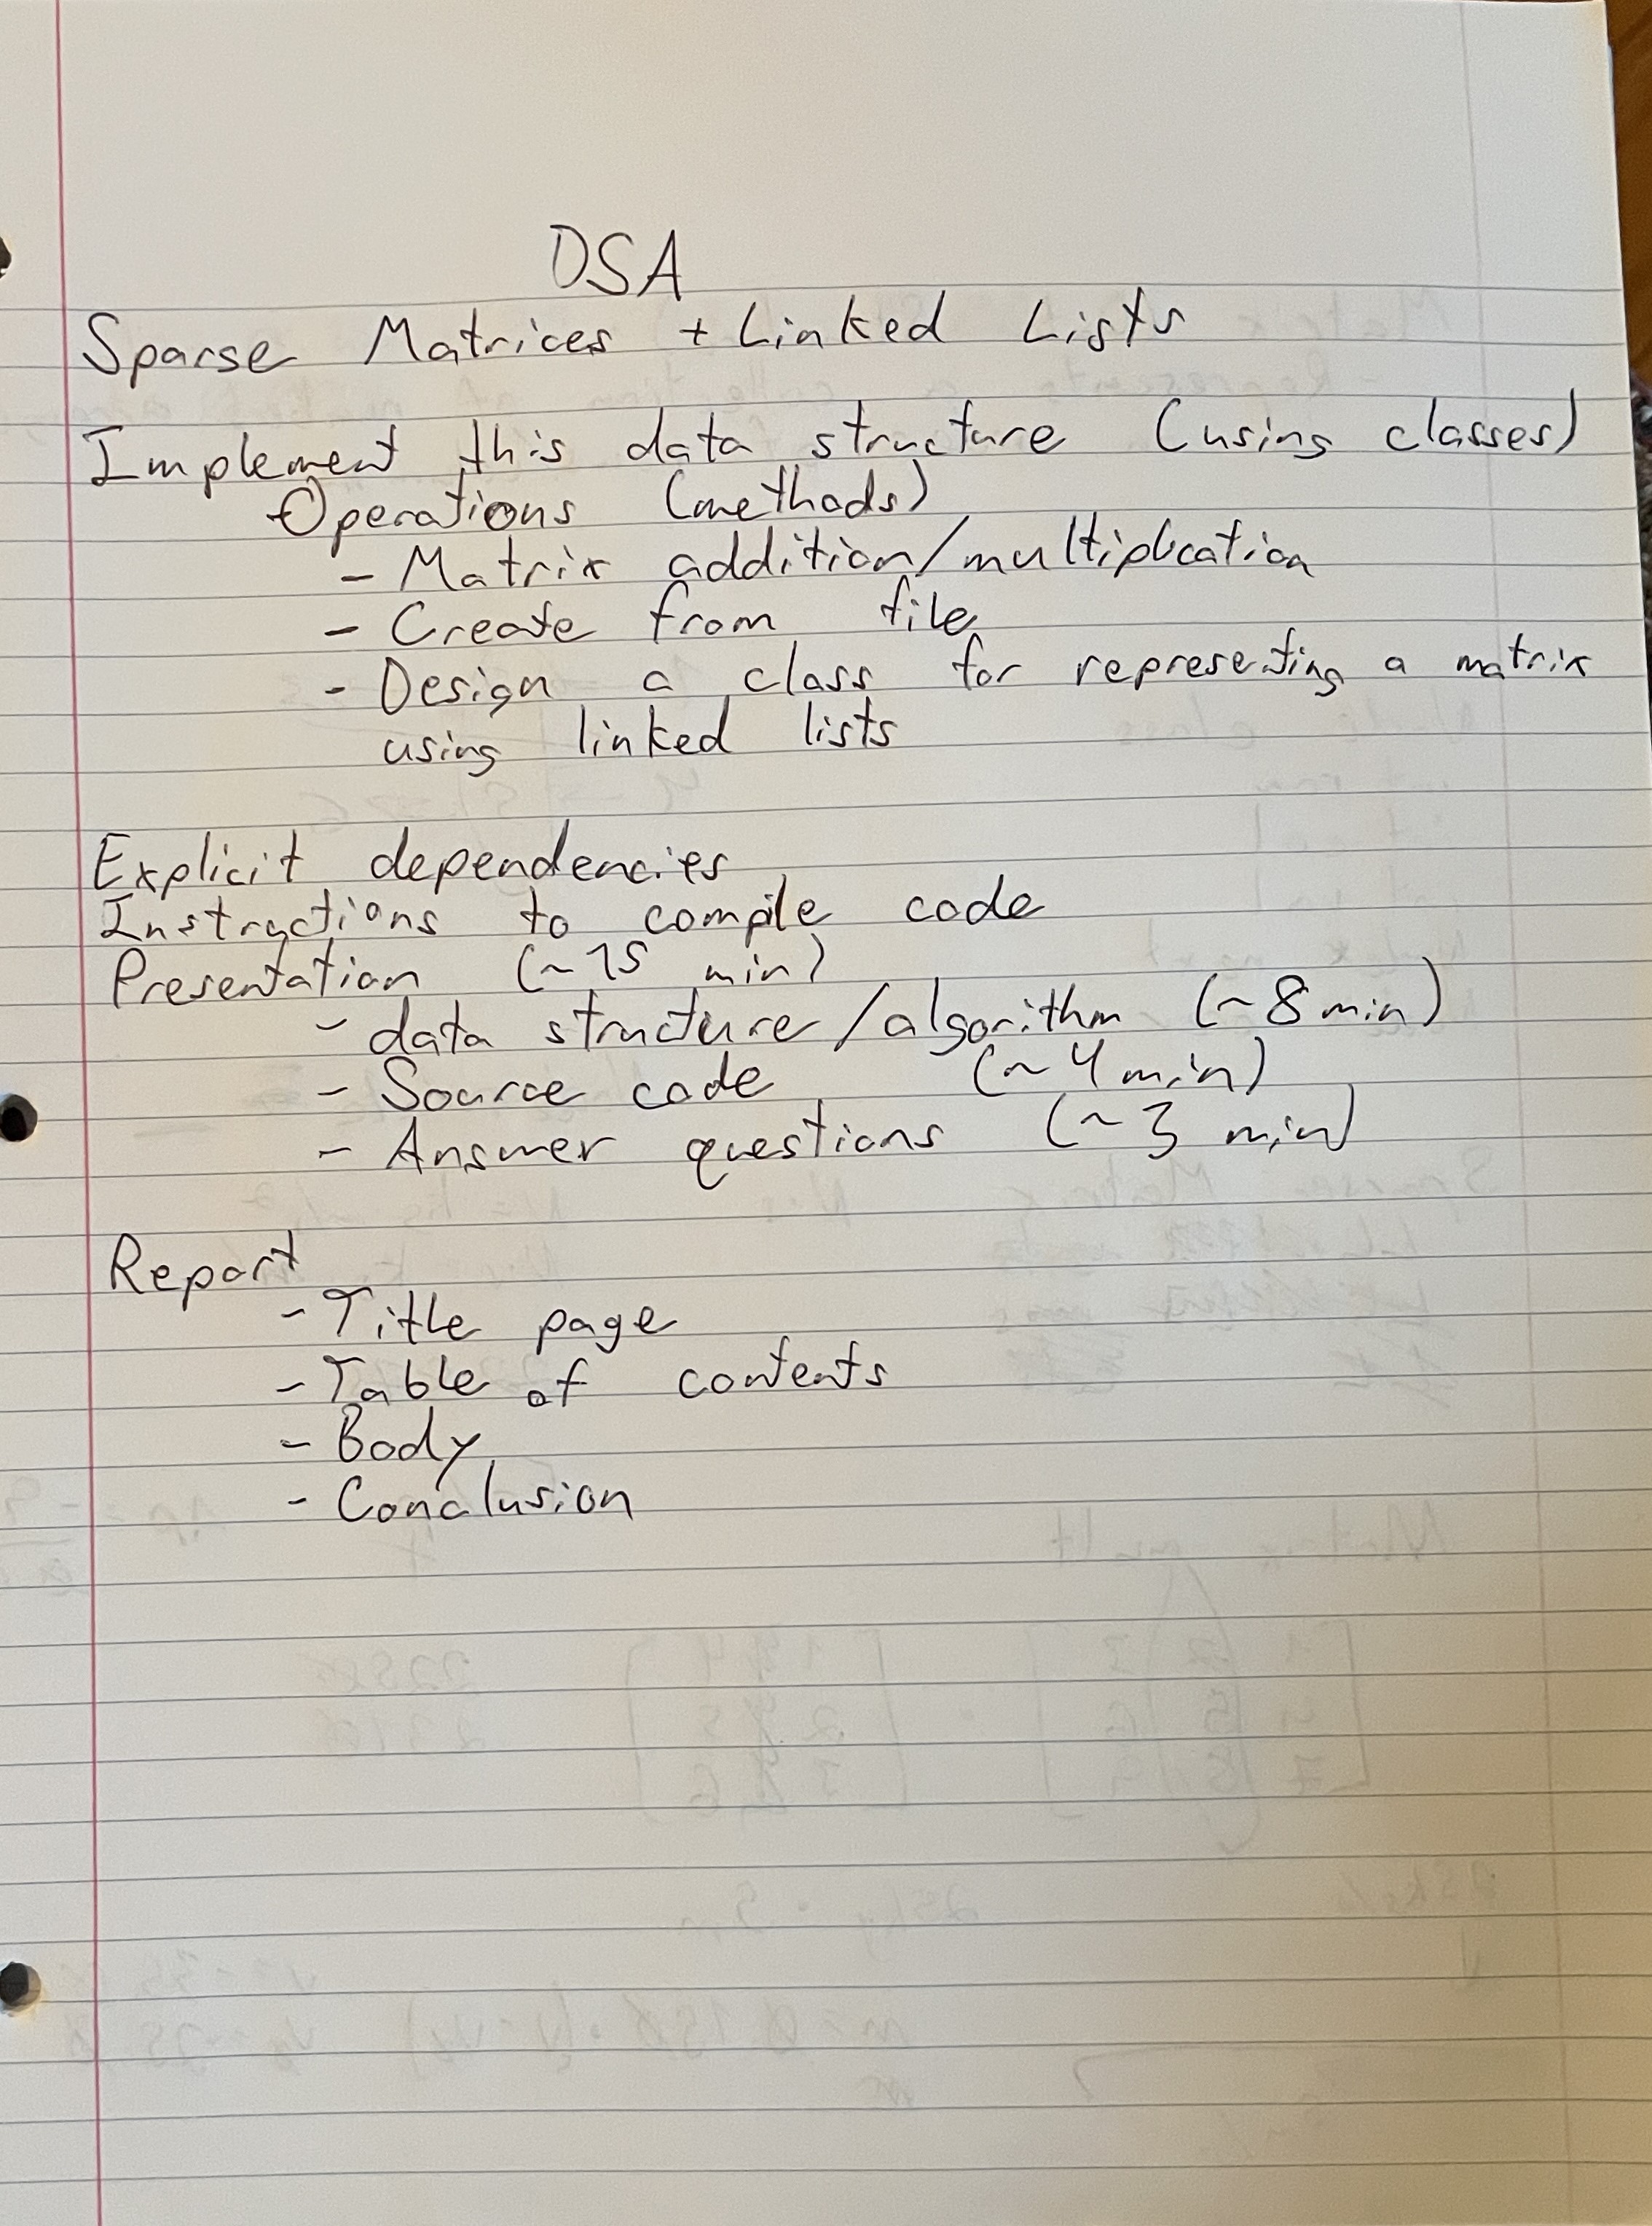 DSA
Sparse Matrices + Linked Lists
Implement this data structure (using classes)
Operations (methods)
- Matrix addition/multiplication
- Create from file
- Design a class for representing a matrix
using linked lists
Explicit dependencies
Instructions to compile code
Presentation (~15 min)
- data structure/algorithm (~8 min)
- Source code (~4 min)
- Answer questions (~3 min)
Report
- Title page
- Table of contents
- Body
- Conclusion